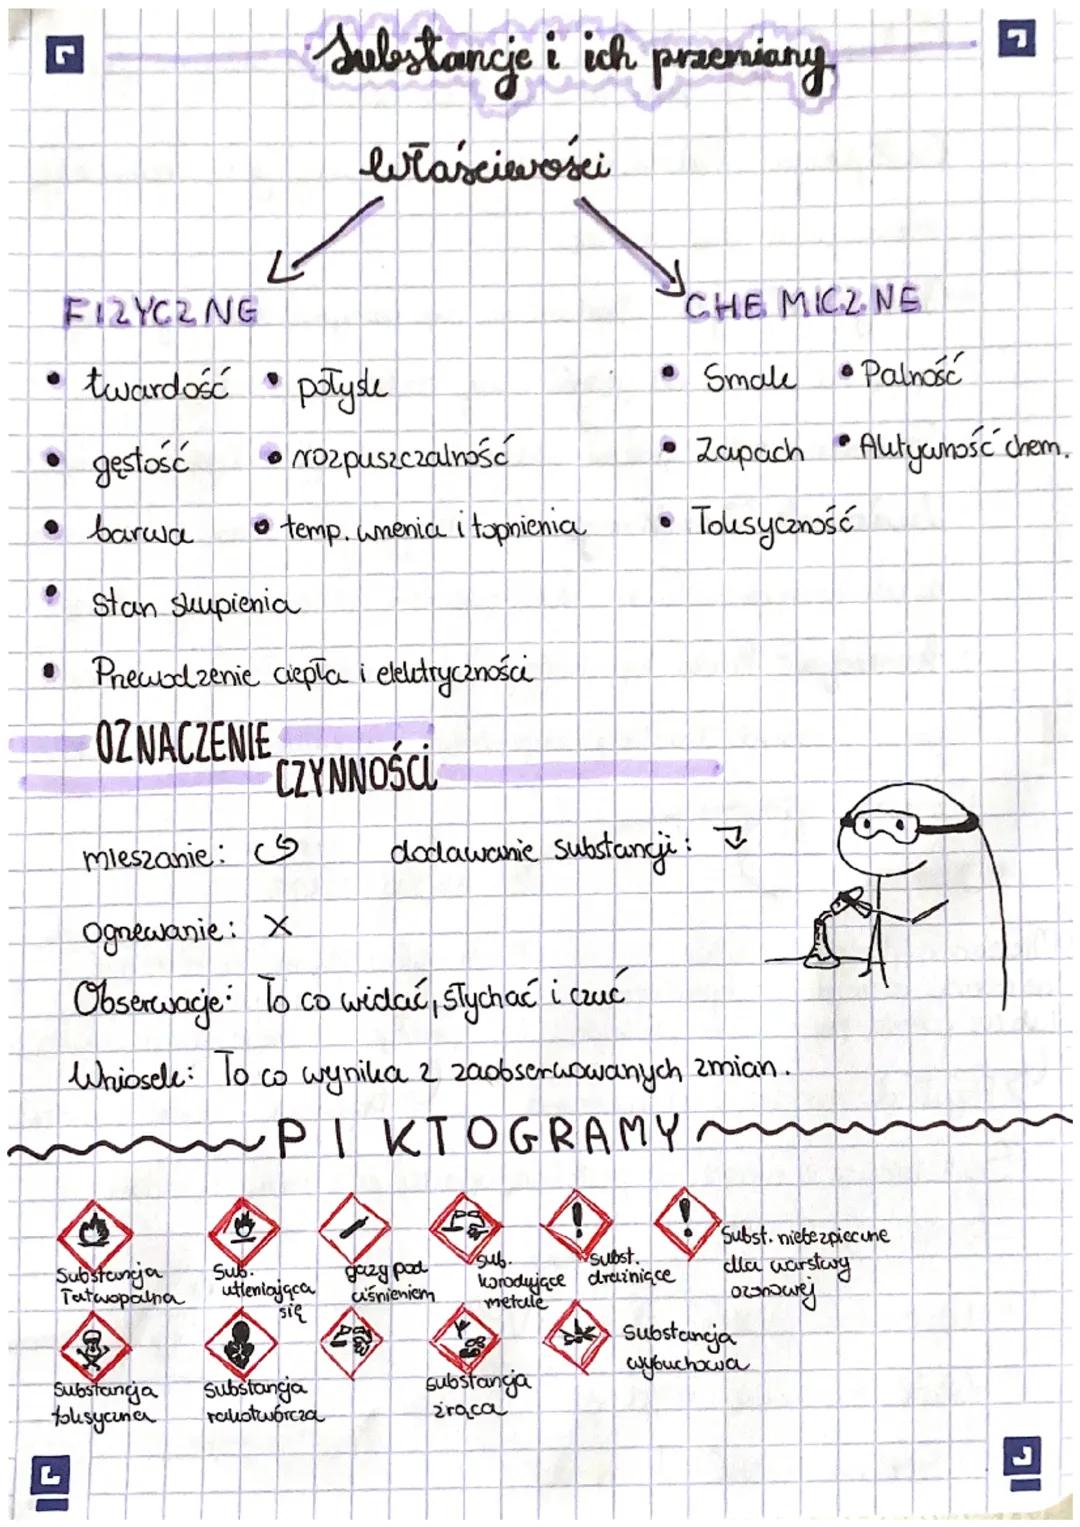 Substancje i ich przemiany
Właściwości
FIZYCZNE
CHEMICZNE
• twardość • połysk
• Smak • Palność
• gęstość • rozpuszczalność
• Zapach • Aktywność chem.
• barwa • temp. wrzenia i topnienia
• Toksyczność
• Stan skupienia
• Przewodzenie ciepła i elektryczności
OZNACZENIE
CZYNNOŚCI
mieszanie: dodawanie substancji:
ogrzewanie: X
Obserwacje: To co widać, słychać i czuć
Wniosek: To co wynika z zaobserwowanych zmian.
PIKTOGRAMY
Substancja
Łatwopalna
Sub.
utleniająca
się
gazy pod
ciśnieniem
sub.
korodujące
metale
subst.
drażniące
Subst. niebezpieczne
dla warstwy
ozonowej
Substancja
toksyczna
Substancja
rakotwórcza
substancja
żrąca
Substancja
wybuchowa